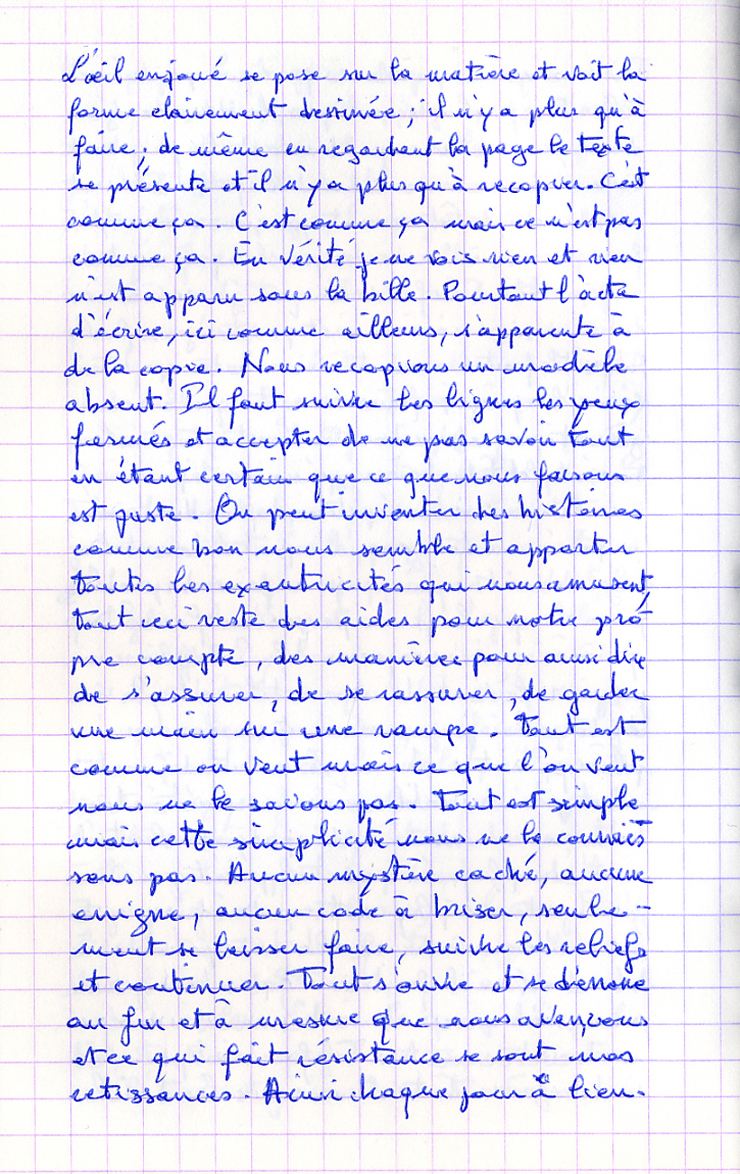 L'œil enjoué se pose sur la matière et voit la
forme clairement dessinée ; il n'y a plus qu'à
faire ; de même en regardant la page le texte
se présente et il n'y a plus qu'à recopier. C'est
comme ça. C'est comme ça mais ce n'est pas
comme ça. En vérité je ne vois rien et rien
n'est apparu sous la bille. Pourtant l'acte
d'écrire, ici comme ailleurs, s'apparente à
de la copie. Nous recopions un modèle
absent. Il faut suivre les lignes les yeux
fermés et accepter de ne pas savoir tout
en étant certain que ce que nous faisons
est juste. On peut inventer des histoires
comme bon nous semble et apporter
toutes les excentricités qui nous amusent,
tout ceci reste des aides pour notre pro
pre compte, des manières pour ainsi dire
de s'assurer, de se rassurer, de garder
une main sur une rampe. Tout est
comme on veut mais ce que l'on veut
nous ne le savons pas. Tout est simple
mais cette simplicité nous ne la connais
sons pas. Aucun mystère caché, aucune
énigme, aucun code à briser, seule-
ment se laisser faire, suivre les reliefs
et continuer. Tout s'ouvre et se dénoue
au fur et à mesure que nous avançons
et ce qui fait résistance se sont nos
réticences. Ainsi chaque jour à lieu.